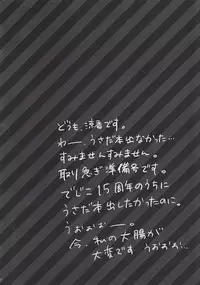 どうも、涼香です。
わー、うさだ本出なかった…
すみませんすみません。
取り急ぎ準備号です。
でじこ15周年のうちに
うさだ本出したかったのに。
うおぉぉー。
今、私の大腸が
大変です うおおお…